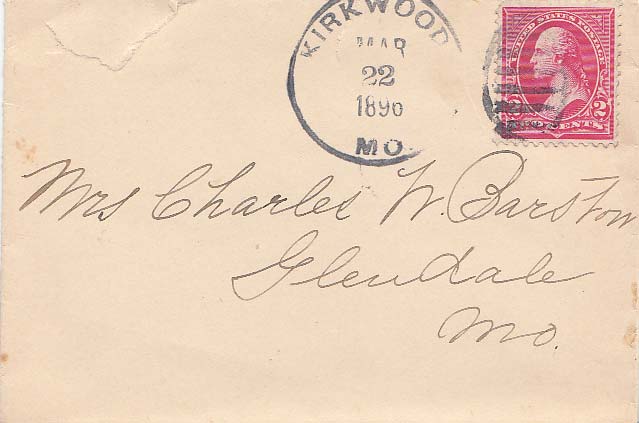 KIRKWOOD
MAR
22
1896
MO.
UNITED STATES POSTAGE
2 CENTS 2
Mrs Charles W. Barstow
Glendale
Mo.